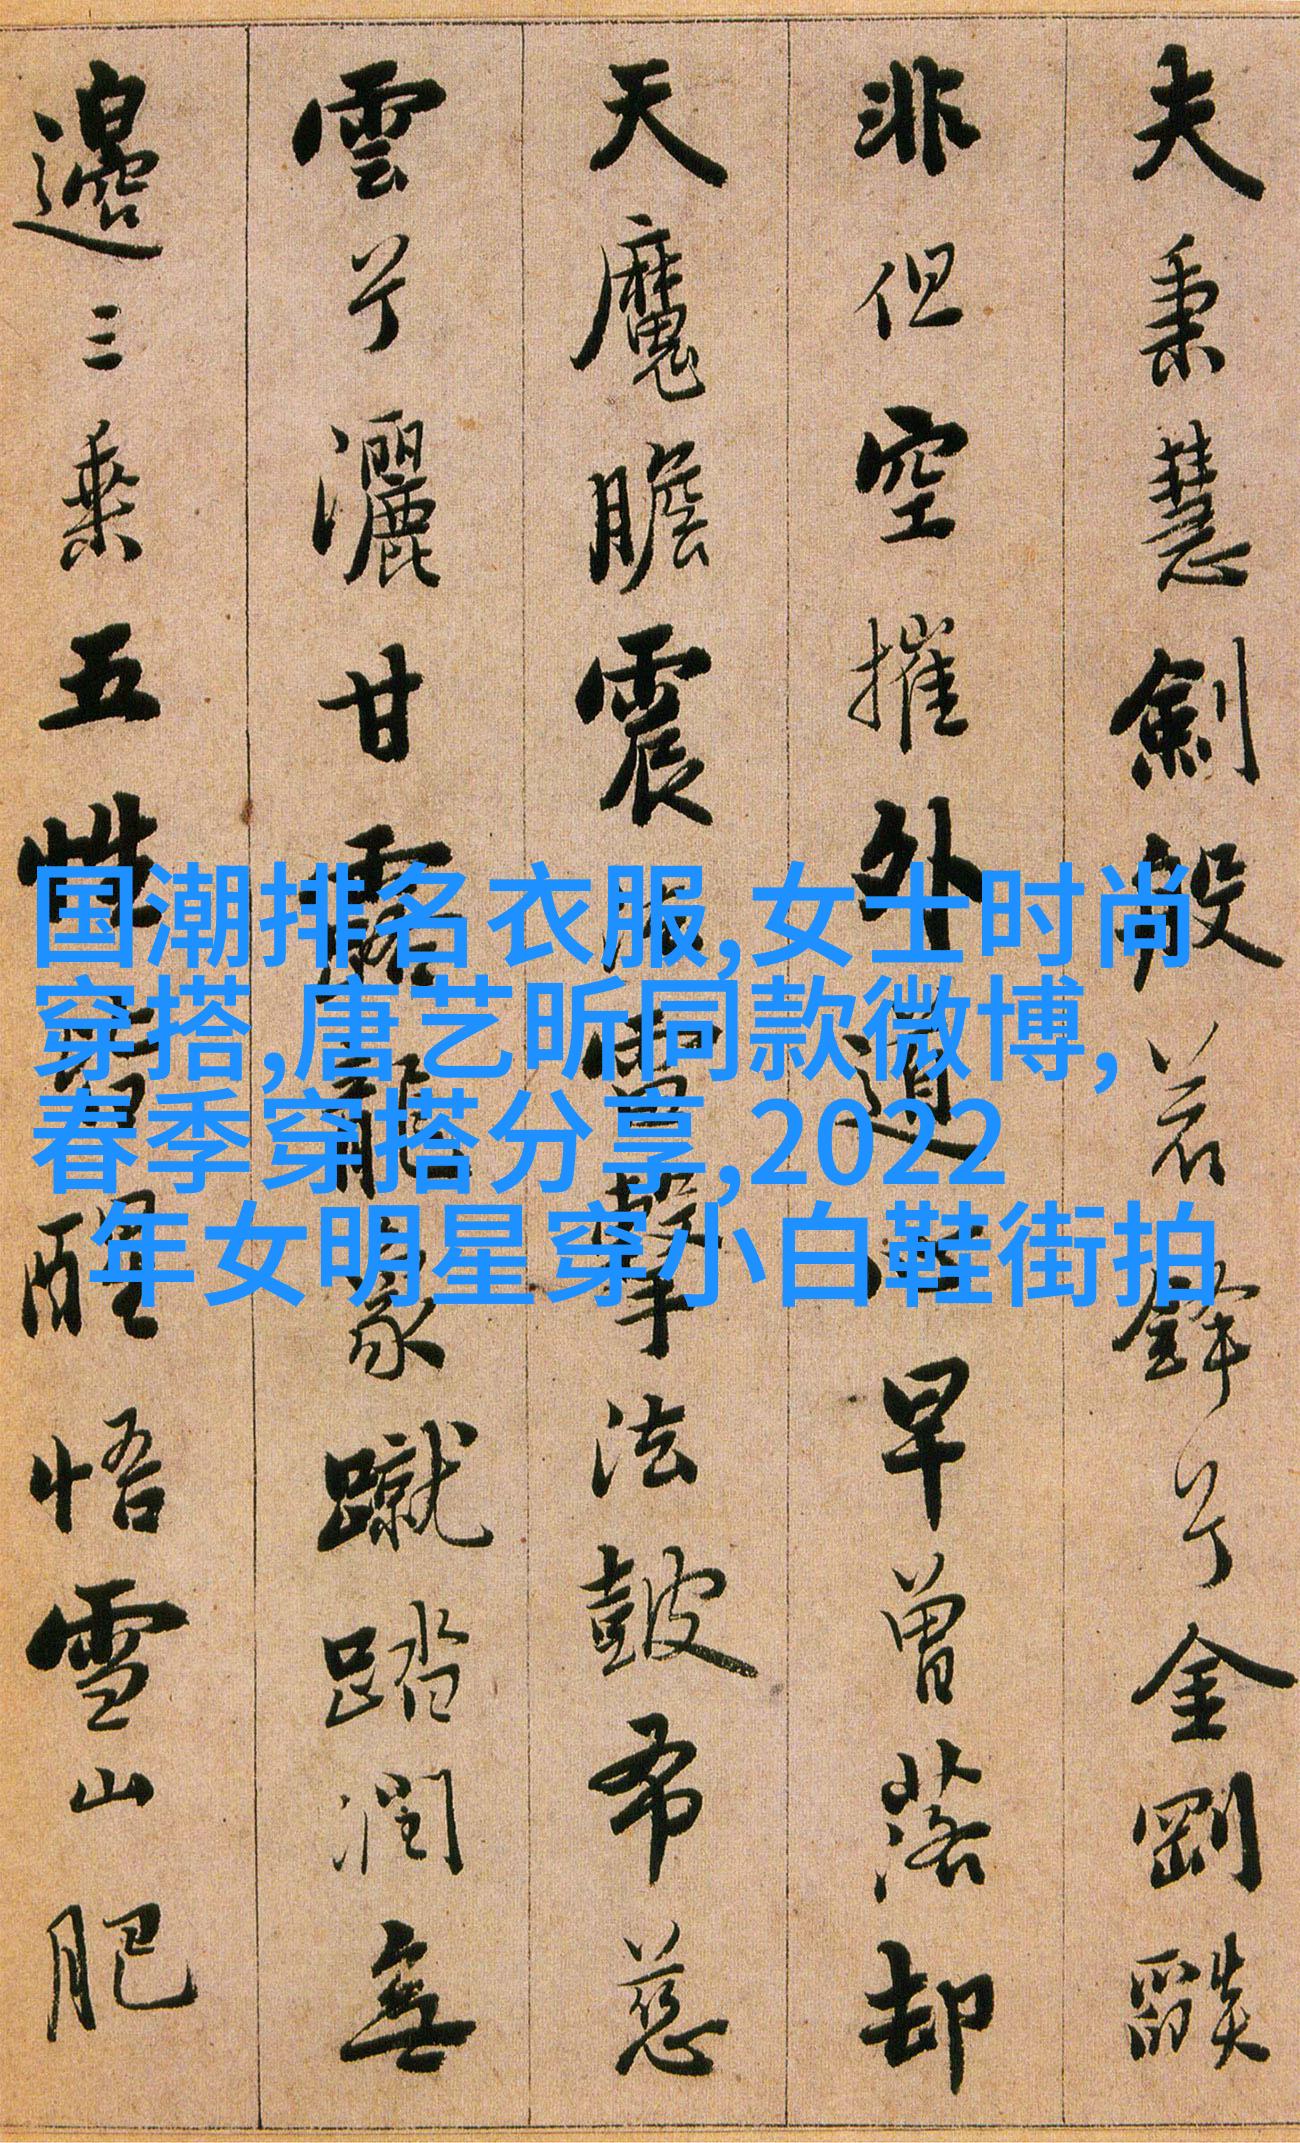 夫秉慧劍般若鋒兮金剛燄
非但空摧外道心早曾落却
天魔膽震法雷擊法皷布慈
雲兮灑甘露龍象蹴踏潤無
邊三乘五性皆醒悟雪山肥
国潮排名衣服,女士时尚
穿搭,唐艺昕同款微博,
春季穿搭分享,2022
年女明星穿小白鞋街拍